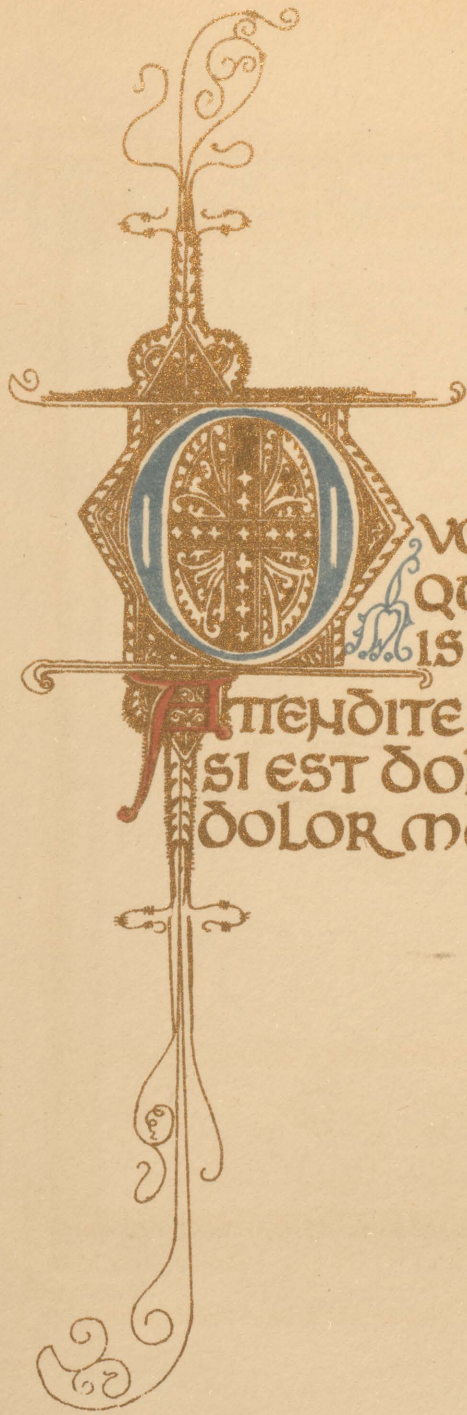 O VO
QU
IS
ATTENDITE
SI EST DOL
DOLOR ME